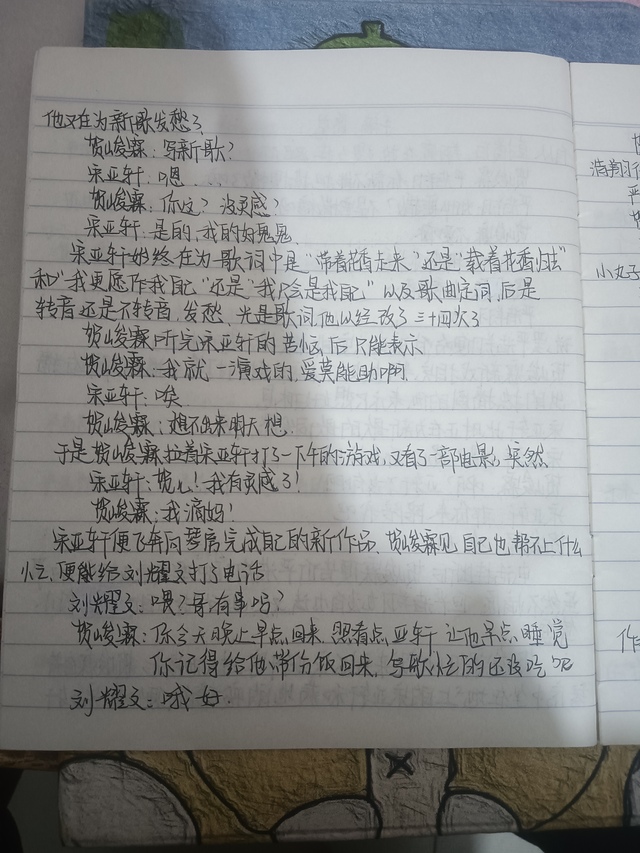 他又在为新歌发愁了
贺峻霖：写新歌？
宋亚轩：嗯...
贺峻霖：你这？没灵感？
宋亚轩：是的，我的好鬼鬼
宋亚轩始终在为歌词中是“带着花香走来”还是“载着花香归去”
和“我更愿作我自己”还是“我只会是我自己”以及歌曲定词，后是
转音还是不转音，发愁，光是歌词他以经改了三十四次了
贺峻霖听完宋亚轩的苦恼后只能表示
贺峻霖：我就一演戏的，爱莫能助啊，
宋亚轩：唉
贺峻霖：想不出来明天想
于是贺峻霖拉着宋亚轩打了一下午的游戏，又看了一部电影，突然
宋亚轩：贺儿！我有灵感了！
贺峻霖：我滴妈！
宋亚轩便飞奔向琴房完成自己的新作品，贺峻霖见自己也帮不上什么
忙，便能给刘耀文打了电话
刘耀文：喂？哥有事吗？
贺峻霖：你今天晚上早点回来，照看点亚轩，让他早点睡觉
你记得给他带份饭回来，写歌忙的还没吃呢
刘耀文：哦好.
浩翔
严
小丸子
作